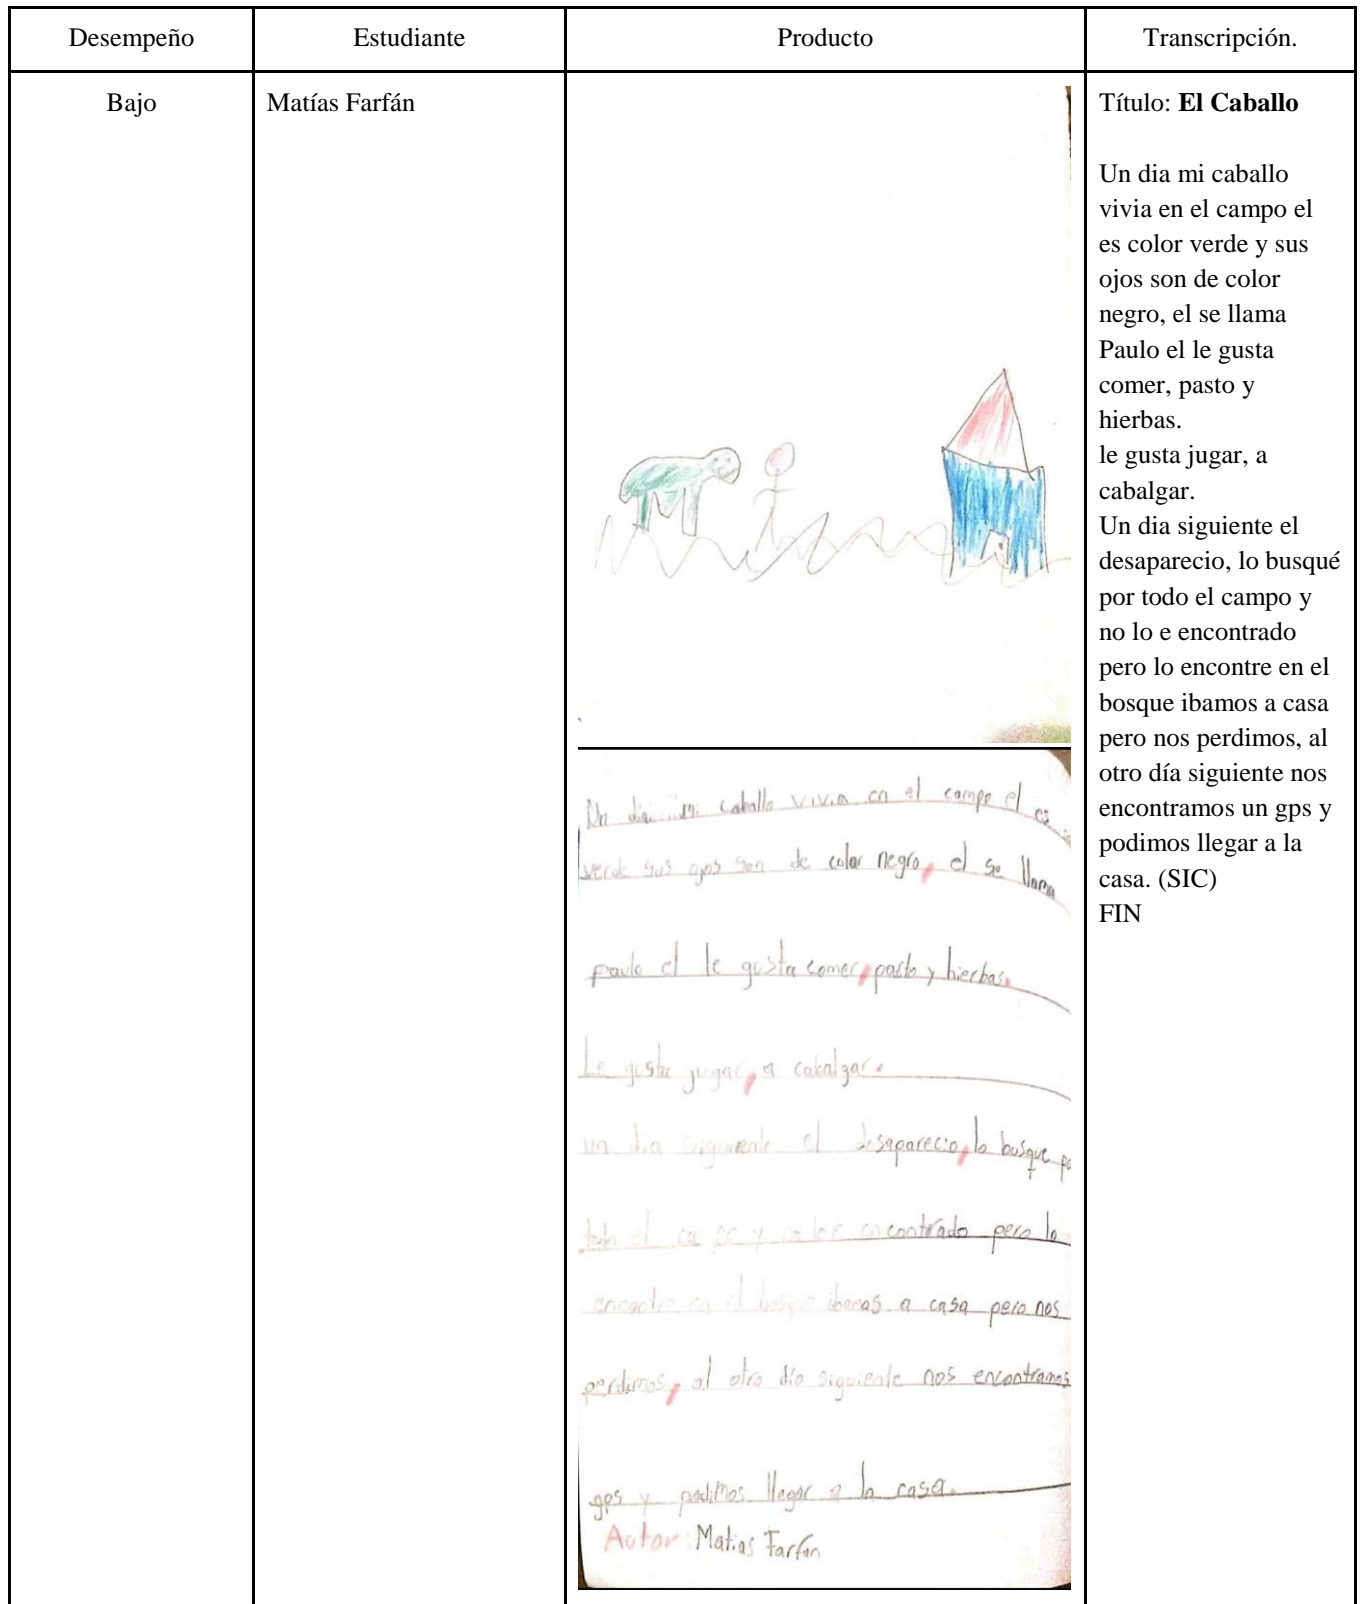 Desempeño
Estudiante
Producto
Transcripción.
Bajo
Matías Farfán
Un dia mi caballo vivia en el campo el es
verde sus ojos son de color negro, el se llama
paulo el le gusta comer, pasto y hierbas.
Le gusta jugar, a cabalgar.
un dia siguiente el desaparecio, lo busque po
todo el campo y no lo e encontrado pero lo
encontre en el bosque ibamos a casa pero nos
perdimos, al otro día siguiente nos encontramos
gps y podimos llegar a la casa.
Autor: Matias Farfan
Título: El Caballo
Un dia mi caballo
vivia en el campo el
es color verde y sus
ojos son de color
negro, el se llama
Paulo el le gusta
comer, pasto y
hierbas.
le gusta jugar, a
cabalgar.
Un dia siguiente el
desaparecio, lo busqué
por todo el campo y
no lo e encontrado
pero lo encontre en el
bosque ibamos a casa
pero nos perdimos, al
otro día siguiente nos
encontramos un gps y
podimos llegar a la
casa. (SIC)
FIN